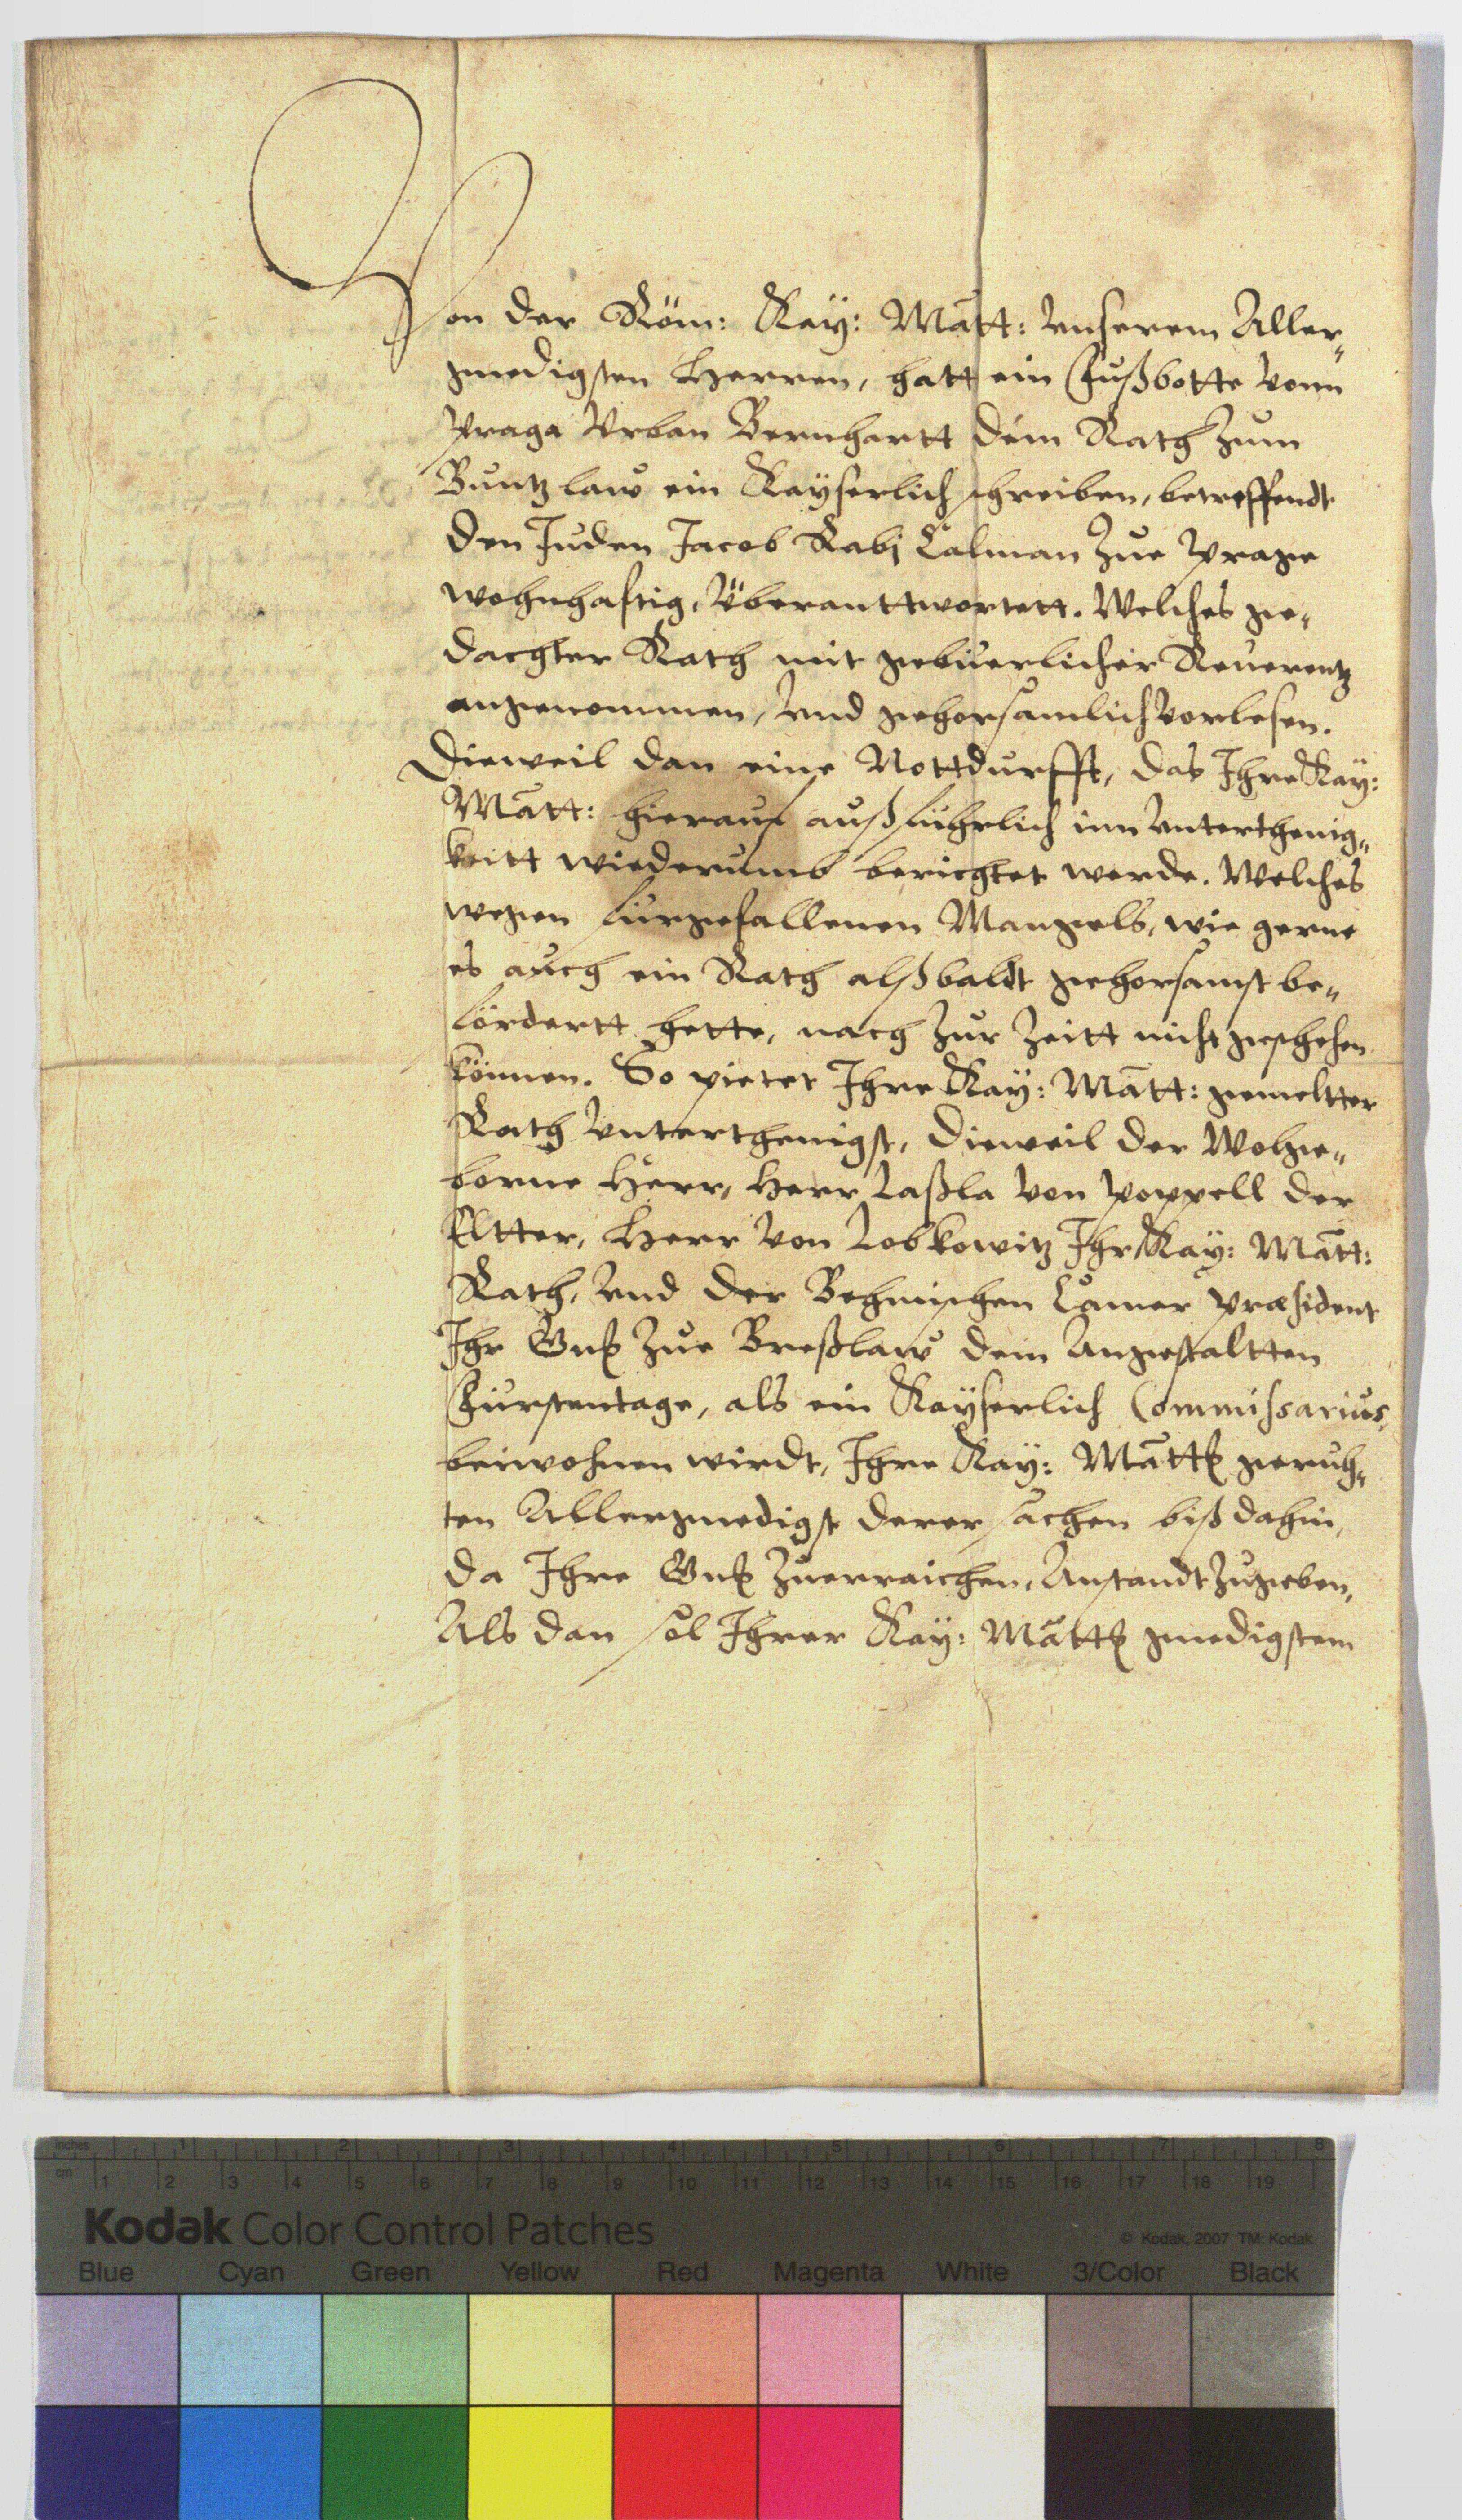 Von der Röm: Kay: Matt: Vnserem Aller„
gnedigsten Herren, hatt ein Fußbotte Vonn
Praga Vrban Bernhartt dem Rath Zum
Buntzlaw ein Kayserlich schreiben, betreffendt
den Juden Jacob Rabj Calman Zue Prage
wohnhaftig, Vberanttwortett. Welches ge„
dachter Rath mit gebuerlicher Reuerentz
angenommen, Vnd gehorsamlich Vorlesen.
Dieweil dan eine Nottdurfft, das Ihre Kay:
Matt: hierauf außführlich inn Vnterthenig„
keitt wiederumb berichtet werde. Welches
wegen fürgefallenen Mangels, wie gerne
es auch ein Rath alßbaldt gehorsamst be„
fördertt hette, nach Zur Zeitt nicht geschehen
können. So pietet Ihre Kay: Matt: gemeltter
Rath Vnterthenigst, Dieweil der Wolge„
borne Herr, Herr Laßla Von Poppell der
Eltter, Herr Von Lobkowitz Ihr Kay: Matt:
Rath, Vnd der Behmischen Camer Præsident
Ihr Gn: Zue Breßlaw dem Angestaltten
Fürstentage, als ein Kayserlich Commissarius,
beiwohnen wirdt, Ihre Kay: Matt: geruh„
ten Allergnedigst derer sachen biß dahin,
da Ihre Gn: Zuerraichen, Anstandt Zugeben,
Als dan sol Ihrer Kay: Matt: gnedigstem
inches 1 2 3 4 5 6 7 8
cm 1 2 3 4 5 6 7 8 9 10 11 12 13 14 15 16 17 18 19
Kodak Color Control Patches
© Kodak, 2007 TM: Kodak
Blue Cyan Green Yellow Red Magenta White 3/Color Black